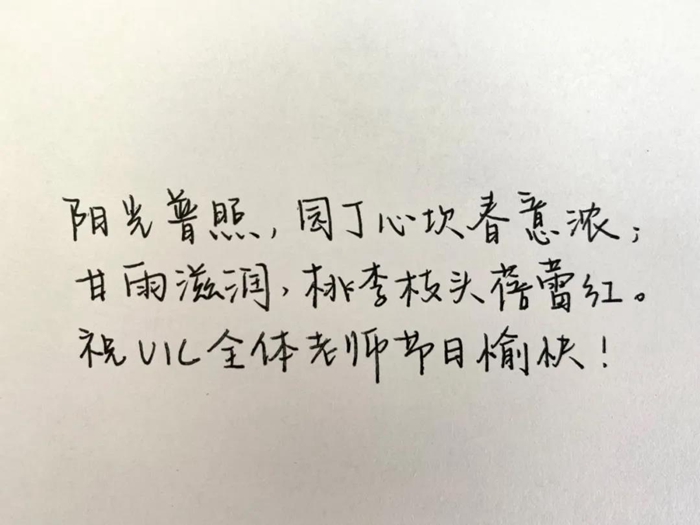 阳光普照，园丁心坎春意浓；
甘雨滋润，桃李枝头蓓蕾红。
祝VIC全体老师节日愉快！